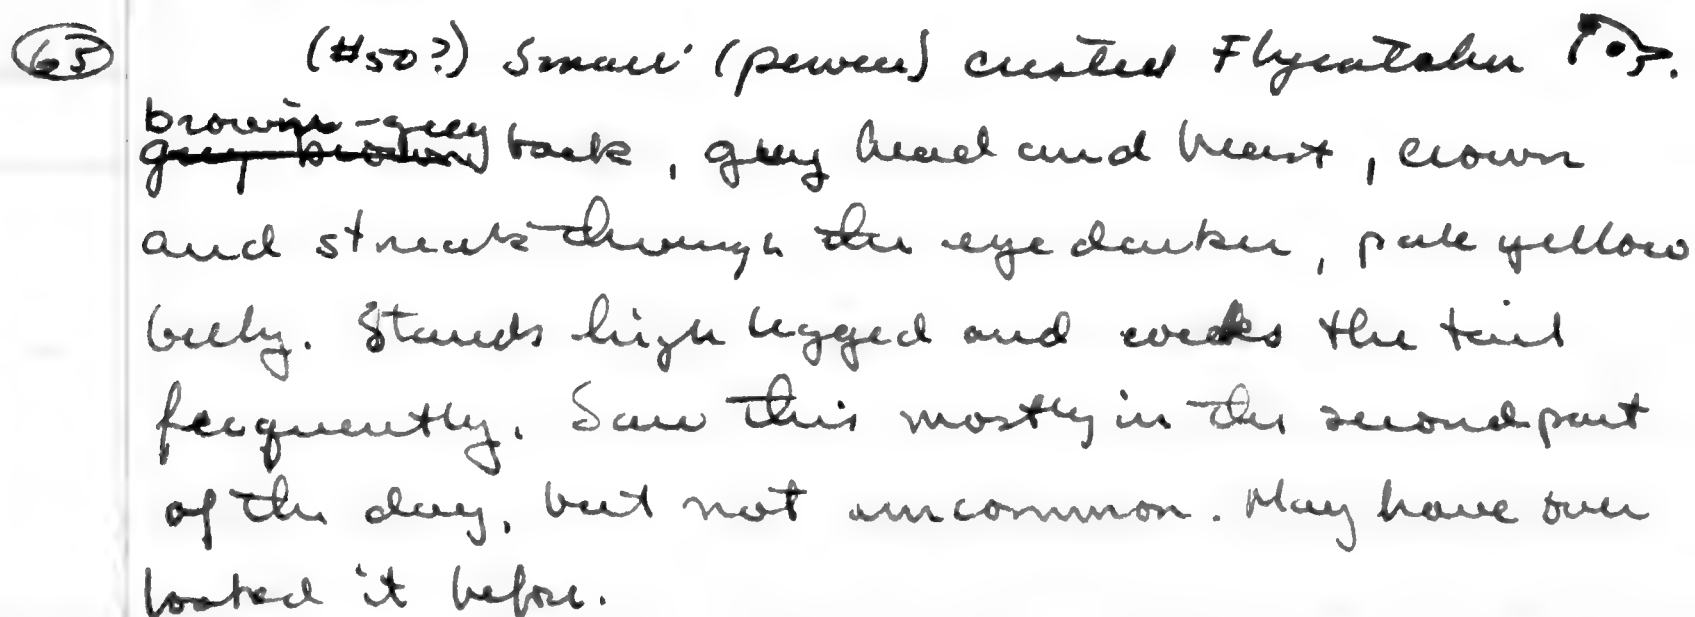 63 (#50?) Small (pewee) crested Flycatcher
brown-grey
grey brown back, grey head and breast, crown
and streak through the eye darker, pale yellow
belly. Stands high legged and cocks the tail
freaquently. Saw this mostly in the second part
of the day, but not uncommon. May have over
looked it before.